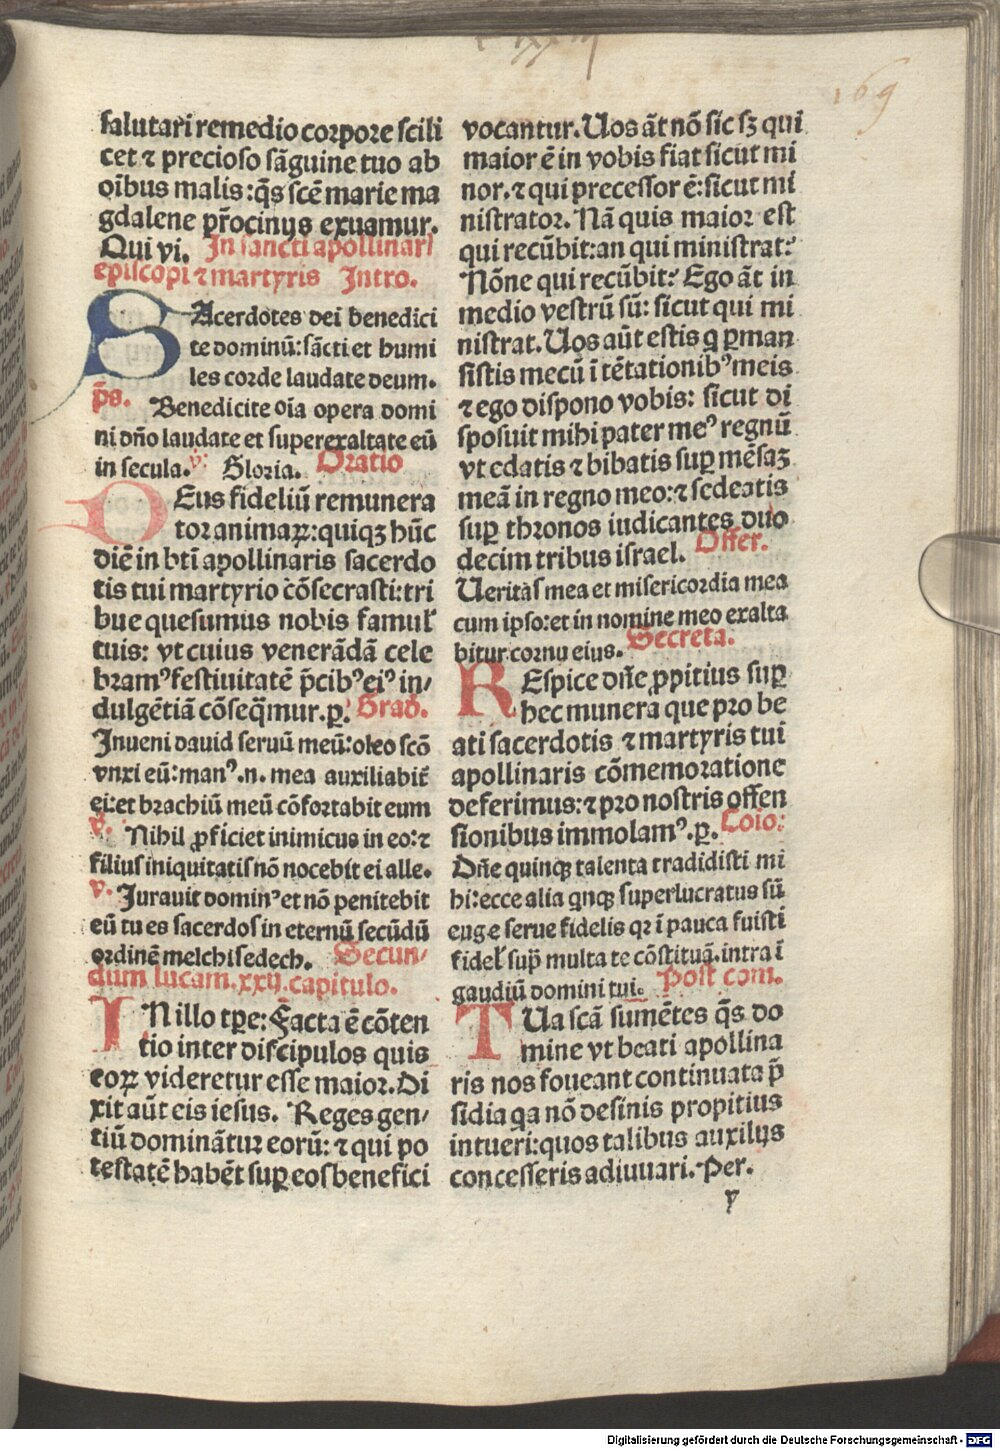 169
salutari remedio corpore scili
cet ⁊ precioso sãguine tuo ab
oĩbus malis: q̃s scẽ marie ma
gdalene p̃rocinijs exuamur.
Qui vi. In sancti apollinarí
episcopi ⁊ martyris Intro.
SAcerdotes dei benedici
te dominũ: sãcti et humi
les corde laudate deum.
p̃s. Benedicite oĩa opera domi
ni dño laudate et superexaltate eũ
in secula. ℣: Gloria. Oratio
DEus fideliũ remunera
tor animaꝝ: quiqꝫ hũc
diẽ in bt̃i apollinaris sacerdo
tis tui martyrio cõsecrasti: tri
bue quesumus nobis famul̕
tuis: vt cuius venerãdã cele
bramꝰ festiuitatẽ p̃cibꝰ eiꝰ in/
dulgẽtiã cõseq̃mur. ꝑ. Grad.
Inueni dauid seruũ meũ: oleo scõ
vnxi eũ: manꝰ .n. mea auxiliabit̃
ei: et brachiũ meũ cõfortabit eum
℣. Nihil ꝓficiet inimicus in eo: ⁊
filius iniquitatis nõ nocebit ei alle.
℣. Jurauit dominꝰ et nõ penitebit
eũ tu es sacerdos in eternũ secũdũ
ordinẽ melchisedech. Secun/
dum lucam. xxij. capitulo.
IN illo tꝑe: Facta ẽ cõten
tio inter discipulos quis
eoꝝ videretur esse maior. Di
xit aũt eis iesus. Reges gen/
tiũ dominãtur eorũ: ⁊ qui po
testatẽ habẽt suꝑ eos benefici
vocantur. Uos ãt nõ sic sꝫ qui
maior ẽ in vobis fiat sicut mi
nor. ⁊ qui precessor ẽ: sicut mi
nistrator. Nã quis maior est
qui recũbit: an qui ministrat?
Nõne qui recũbit? Ego ãt in
medio vestrũ sũ: sicut qui mi
nistrat. Uos aũt estis q ꝑman
sistis mecũ ĩ tẽtationibꝰ meis
⁊ ego dispono vobis: sicut di
sposuit mihi pater meꝰ regnũ
vt edatis ⁊ bibatis suꝑ mẽsaꝫ
meã in regno meo: ⁊ sedeatis
suꝑ thronos iudicantes duo
decim tribus israel. Offer.
Ueritas mea et misericordia mea
cum ipso: et in nomine meo exalta
bitur cornu eius. Secreta.
REspice dñe ꝓpitius suꝑ
hec munera que pro be
ati sacerdotis ⁊ martyris tui
apollinaris cõmemoratione
deferimus: ⁊ pro nostris offen
sionibus immolamꝰ. ꝑ. Coĩo:
Dñe quinqꝫ talenta tradidisti mi
hi: ecce alia qnqꝫ superlucratus sũ
euge serue fidelis qr ĩ pauca fuisti
fidel̕ suꝑ multa te cõstituã. intra ĩ
gaudiũ domini tui. Post com.
TUa scã sumẽtes q̃s do
mine vt beati apollina
ris nos foueant continuata p̃
sidia qa nõ desinis propitius
intueri: quos talibus auxilijs
concesseris adiuuari. Per.
y
Digitalisierung gefördert durch die Deutsche Forschungsgemeinschaft - DFG